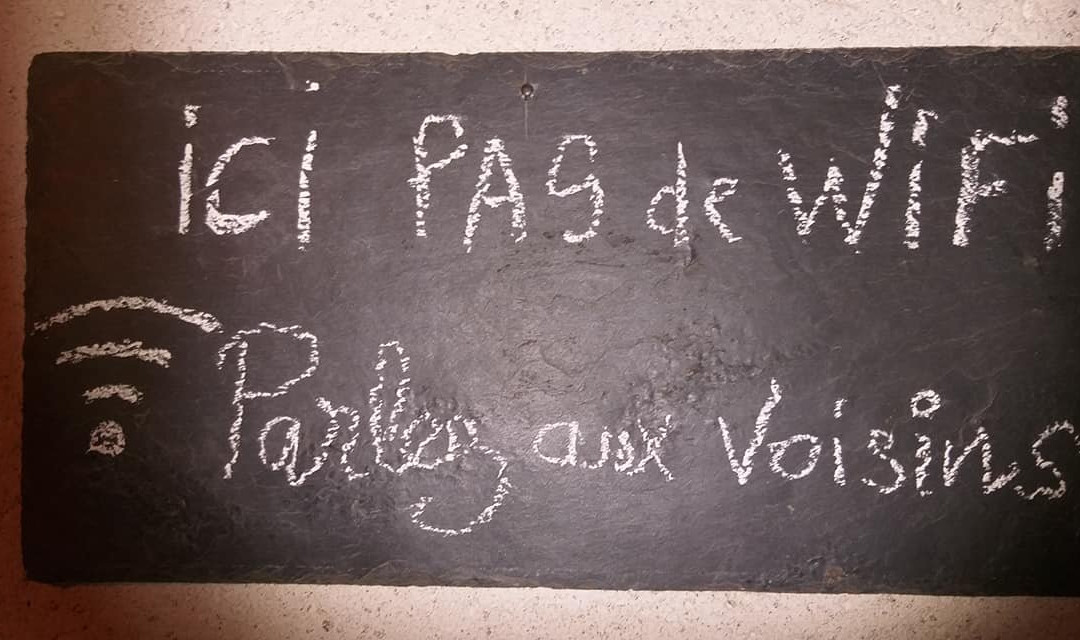 ici PAS de WiFi
Parlez aux Voisins